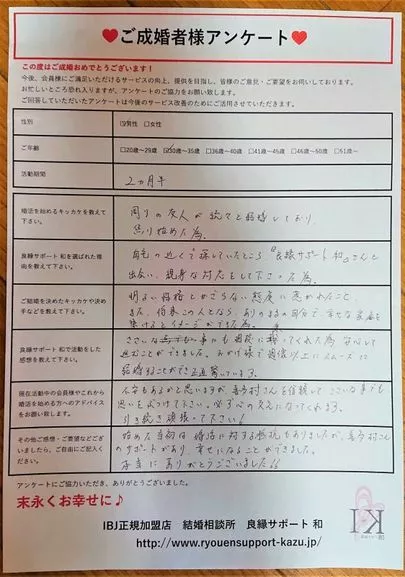 ♥ご成婚者様アンケート♥
この度はご成婚おめでとうございます！
今後、会員様にご満足いただけるサービスの向上、提供を目指し、皆様のご意見・ご要望をお伺いしております。
お忙しいところ恐れ入りますが、アンケートのご協力をお願い致します。
ご回答していただいたアンケートは今後のサービス改善のためにご活用させていただきます。
性別 ☑男性 □女性
ご年齢 □20歳～29歳 ☑30歳～35歳 □36歳～40歳 □41歳～45歳 □46歳～50歳 □51歳～
活動期間 2ヵ月半
婚活を始めるキッカケを教えて
下さい。
周りの友人が続々と結婚しており
焦り始めた為。
良縁サポート 和を選ばれた理
由を教えて下さい。
自宅の近くで探していたところ『良縁サポート 和』さんと
出会い、親身な対応をして下さった為。
ご結婚を決めたキッカケや決め
手などを教えて下さい。
明るい性格とかざらない態度に惹かれたこと
また、将来この人となら、ありのままの自分で、幸せな家庭を
築けるとイメージができた為。
良縁サポート 和で活動をした
感想を教えて下さい。
ささいな事にも親身に
進むことができました。おかげ様で想像以上にスムーズに
結婚することができ
現在活動中の会員様やこれから
婚活を始める方へのアドバイス
をお願い致します。
不安もあるかと思いますが、喜多村さんを信頼して、ささいな事でも
思いを伝えて下さい。必ず心の支えになってくれます。
引き続き頑張って下さい！
その他ご感想・ご要望などござ
いましたら、ご自由にご記入く
ださい。
始めた当初は婚活に対する抵抗もありましたが、喜多村さん
のサポートがあり、幸せになることができました。
本当にありがとうございました!!
アンケートにご協力いただき、ありがとうございました。
末永くお幸せに♪
KI
IBJ正規加盟店 結婚相談所 良縁サポート 和
http://www.ryouensupport-kazu.jp/